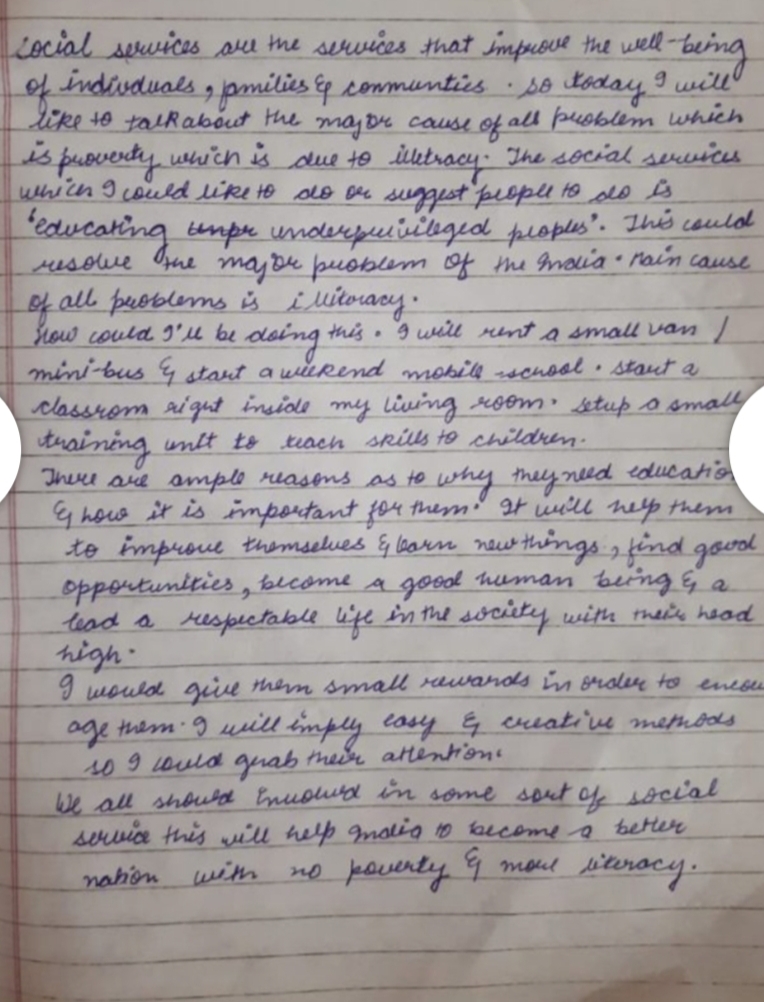 Social services are the services that improve the well-being
of indivduals, families & communties. So today I will
like to talk about the major cause of all problem which
is proverty which is due to illetracy. The social services
which I could like to do or suggest people to do is
"educating unpr underpriviledged peoples". This could
resolve the major problem of the India. Main cause
of all problems is illiteracy.
How could I'll be doing this. I will rent a small van /
mini-bus & start a weekend mobile school. Start a
classrom right inside my living room. Setup a small
training unit to teach skills to children.
There are ample reasons as to why they need educatio
& how it is important for them. It will help them
to improve themselves & learn new things, find good
opportunities, become a good human being & a
lead a respectable life in the society with their head
high.
I would give them small rewards in order to encou
age them. I will imply easy & creative methods
so I could grab their attention.
We all should involved in some sort of social
service this will help India to become a better
nation with no poverty & more literacy.